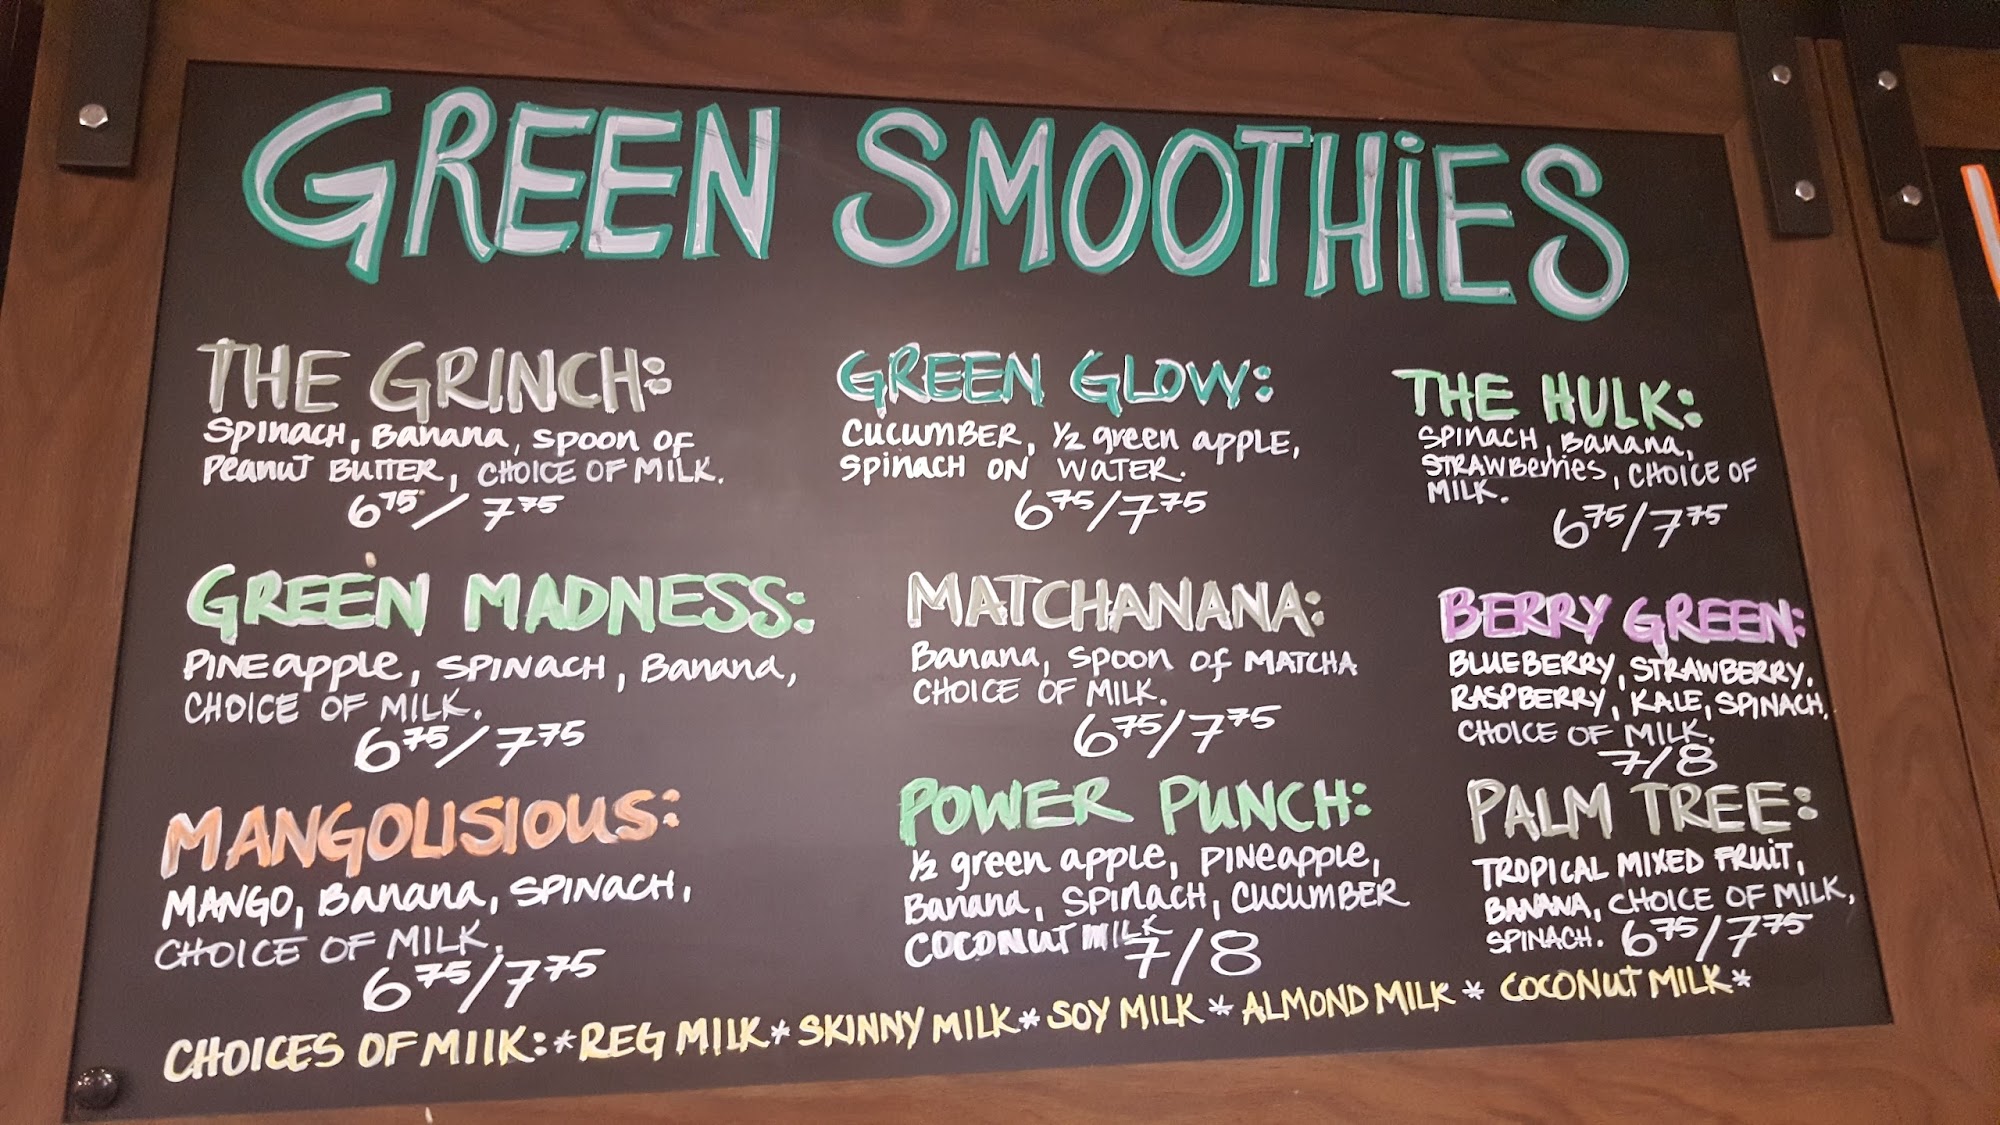 GREEN SMOOTHiES
THE GRINCH:
SPINACH, Banana, SPOON OF
Peanut BUTTER, CHOICE OF MILK.
6 75/ 7 75
GREEN GLOW:
CUCUMBER, 1/2 green apple,
SPINACH ON WATER.
6 75/7 75
THE HULK:
SPINACH, Banana,
STRAWBerries, CHOICE OF
MILK.
6 75/7 75
GREEN MADNESS:
PINEapple, SPINACH, Banana,
CHOICE OF MILK.
6 75/7 75
MATCHANANA:
Banana, SPOON OF MATCHA
CHOICE OF MILK.
6 75/7 75
BERRY GREEN:
BLUEBERRY, STRAWBERRY,
RASPBERRY, KALE, SPINACH,
CHOICE OF MILK.
7/8
MANGOLISIOUS:
MANGO, Banana, SPINACH,
CHOICE OF MILK.
6 75/7 75
POWER PUNCH:
1/2 green apple, PINEapple,
Banana, SPINACH, CUCUMBER
COCONUT MILK
7/8
PALM TREE:
TROPICAL MIXED FRUIT,
BANANA, CHOICE OF MILK,
SPINACH. 6 75/7 75
CHOICES OF MIlK: *REG MILK * SKINNY MILK * SOY MILK * ALMOND MILK * COCONUT MILK *